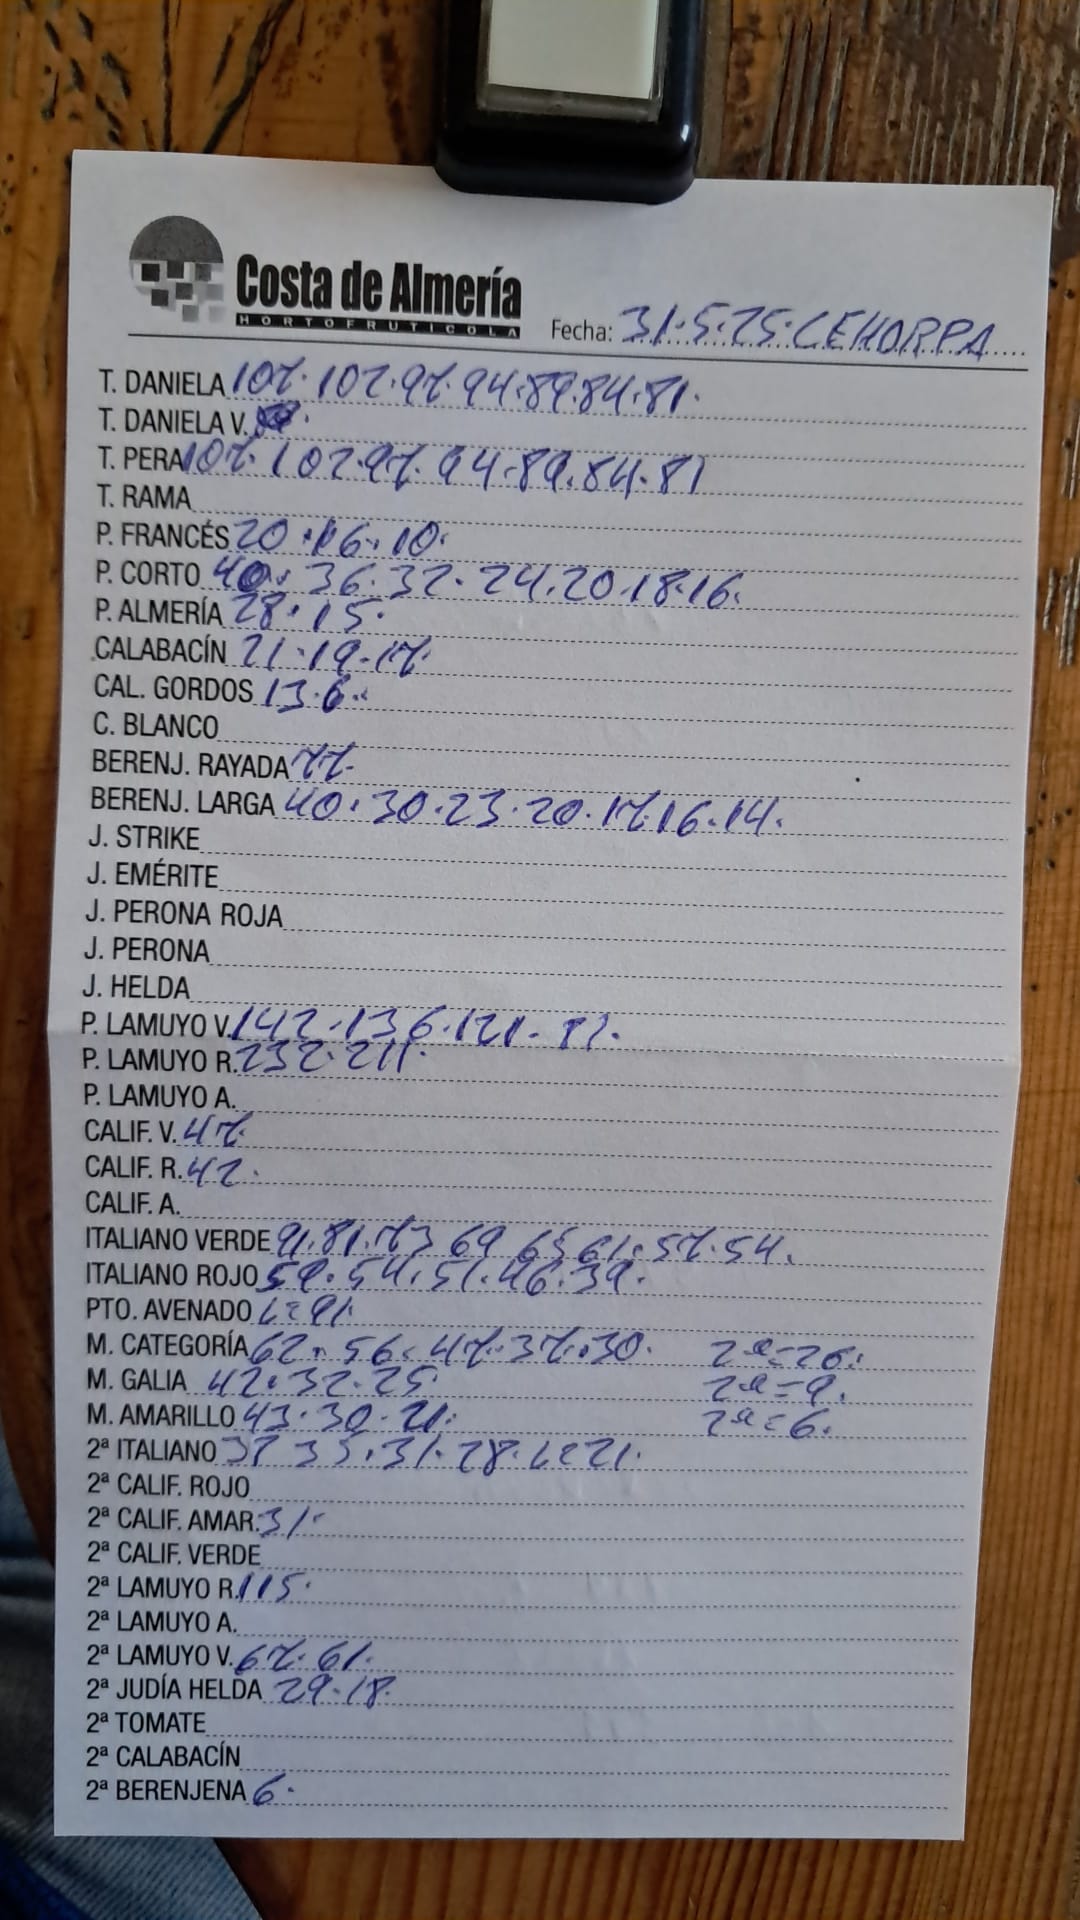 Costa de Almería
HORTOFRUTICOLA
Fecha: 31.5.25.CEHORPA
T. DANIELA 107.102.97.94.89.84.81.
T. DANIELA V.
T. PERA 107.102.97.94.89.84.81
T. RAMA
P. FRANCÉS 20.16.10.
P. CORTO 40.36.32.24.20.18.16.
P. ALMERÍA 28.15.
CALABACÍN 21.19.17.
CAL. GORDOS 13.6.
C. BLANCO
BERENJ. RAYADA 77.
BERENJ. LARGA 40.30.23.20.17.16.14.
J. STRIKE
J. EMÉRITE
J. PERONA ROJA
J. PERONA
J. HELDA
P. LAMUYO V. 142.136.121.81.
P. LAMUYO R. 232.211.
P. LAMUYO A.
CALIF. V. 47.
CALIF. R. 42.
CALIF. A.
ITALIANO VERDE 91.81.73 69 65 61.57.54.
ITALIANO ROJO 59.54.51.46.39.
PTO. AVENADO L=91.
M. CATEGORÍA 62.56.47.37.30. 2ª=26.
M. GALIA 42.32.25. 2ª=9.
M. AMARILLO 43.30.21. 2ª=6.
2ª ITALIANO 37 35.31.28.L=21.
2ª CALIF. ROJO
2ª CALIF. AMAR. 31.
2ª CALIF. VERDE
2ª LAMUYO R. 115.
2ª LAMUYO A.
2ª LAMUYO V. 67.61.
2ª JUDÍA HELDA 29.18.
2ª TOMATE
2ª CALABACÍN
2ª BERENJENA 6.